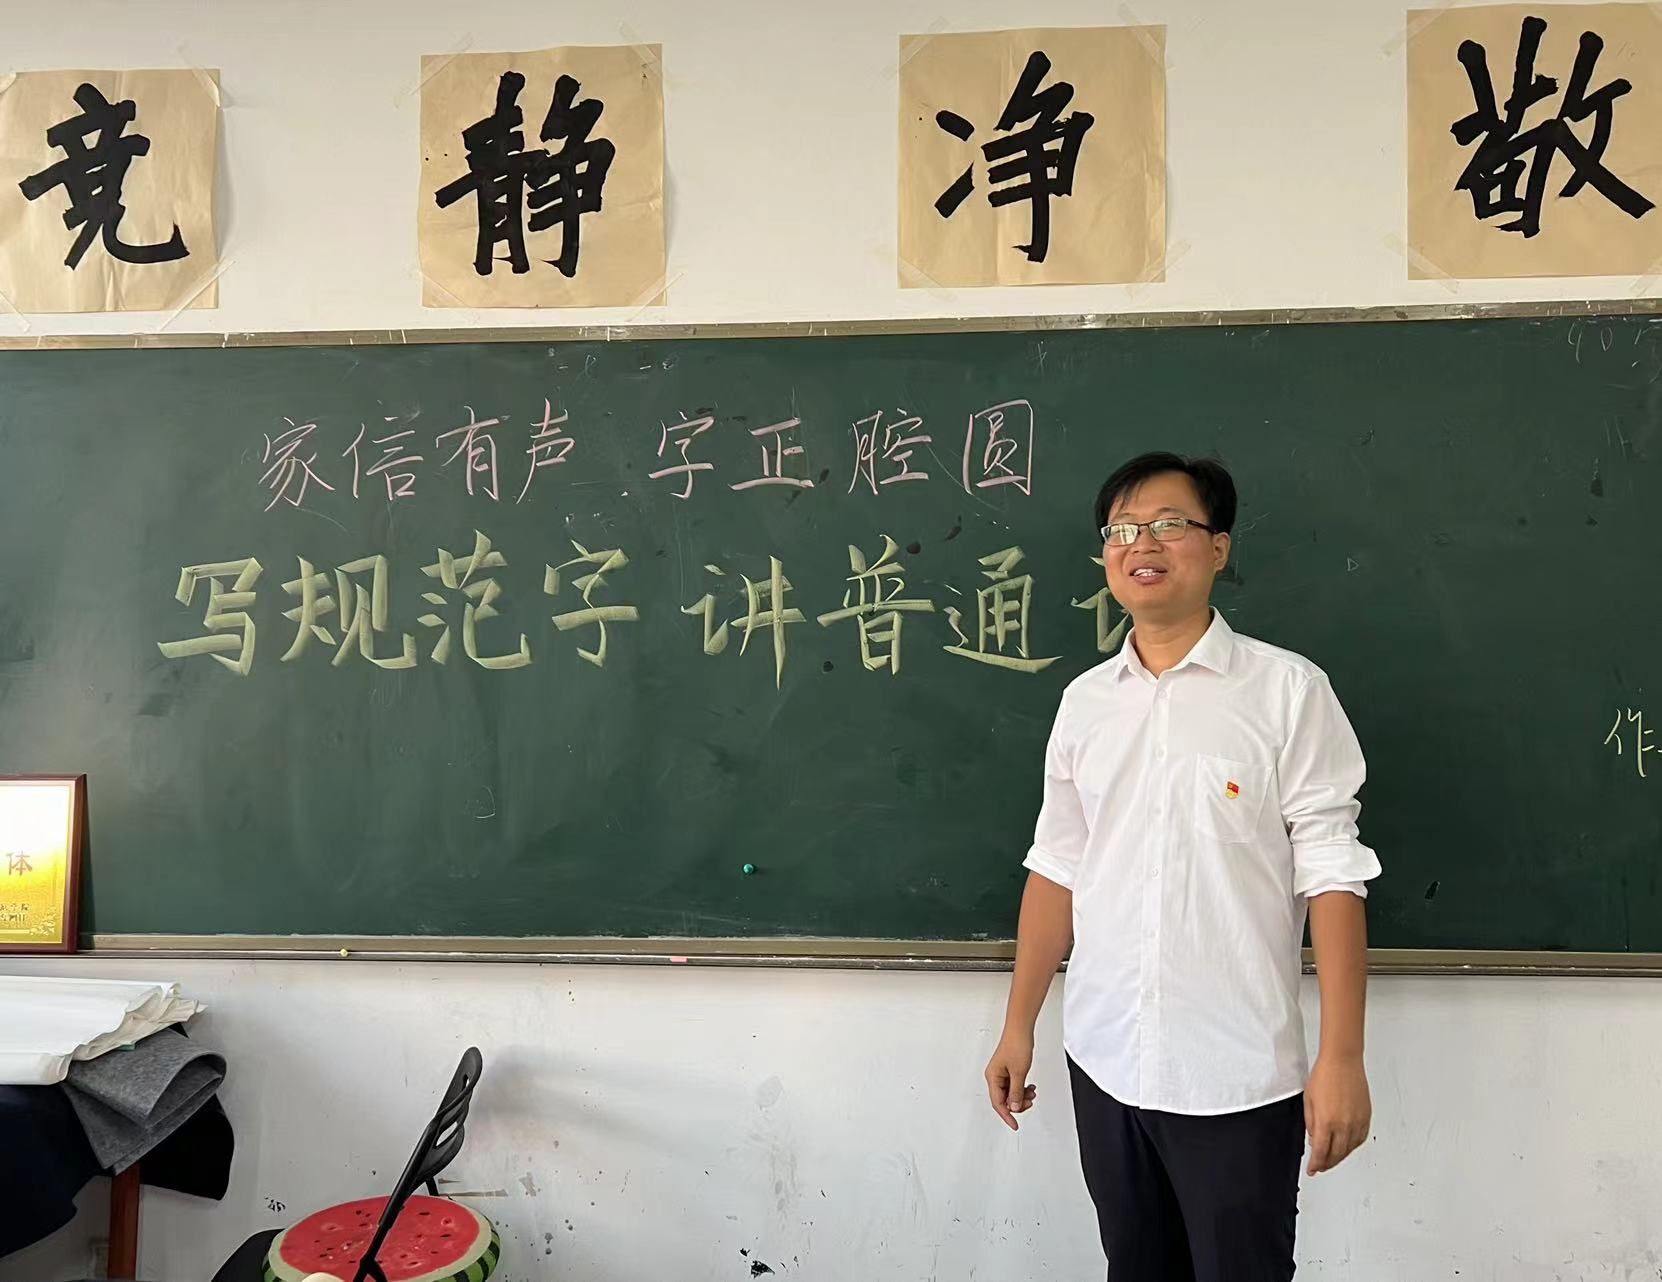 竞 静 净 敬
家信有声 字正腔圆
写规范字 讲普通
作
体